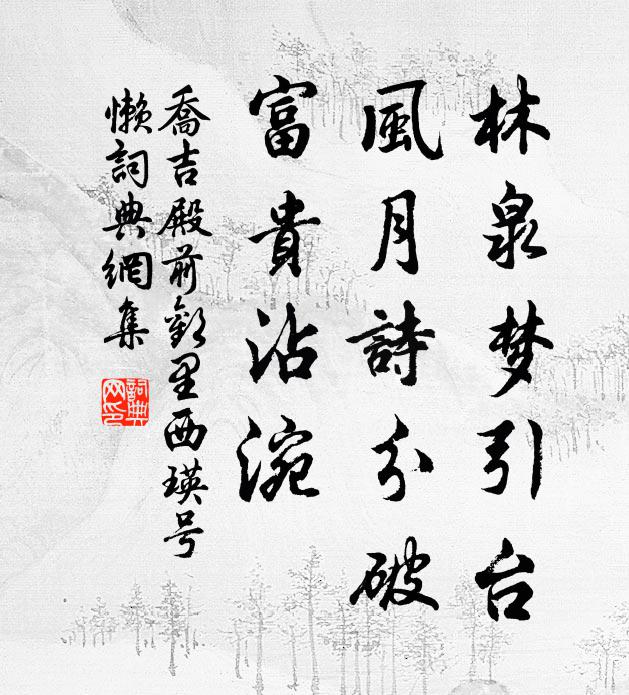 林泉梦引台
風月詩分破
富貴沾涴
喬吉殿前歡里西瑛号
懶詞典網集
詞典
网印